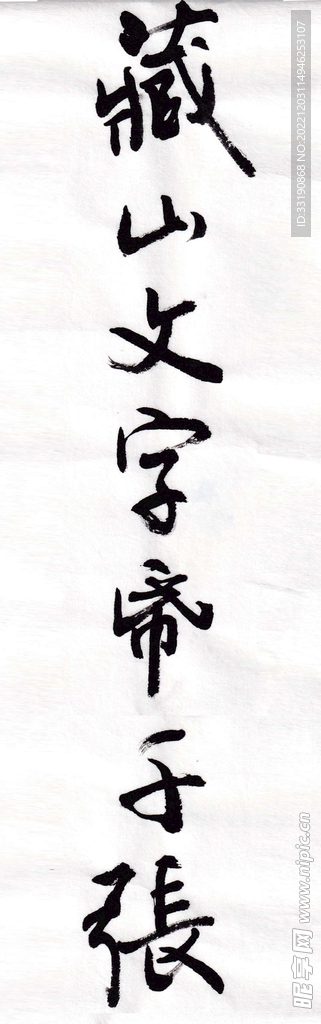 藏山文字帝千張
ID:33190868 NO:20221203114946253107
昵享网 www.nipic.cn